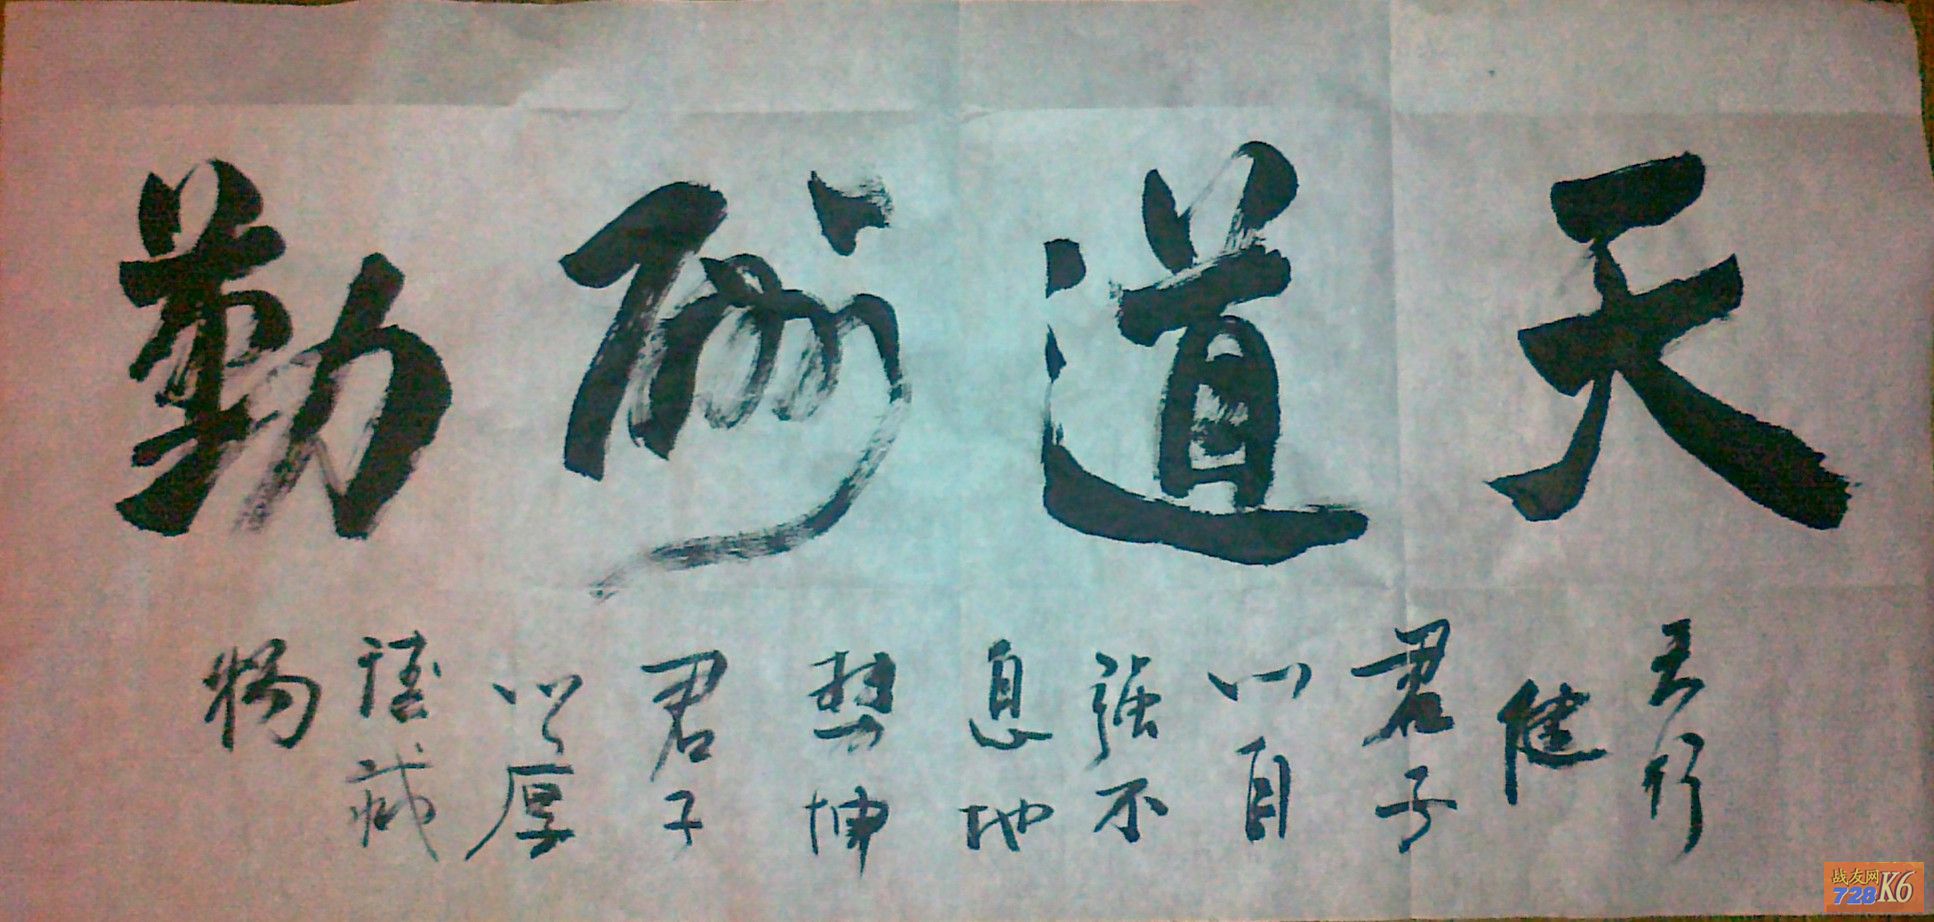 天道酬勤
天行
健
君子
以自
强不
息地
势坤
君子
以厚
德载
物
战友网
728 K6